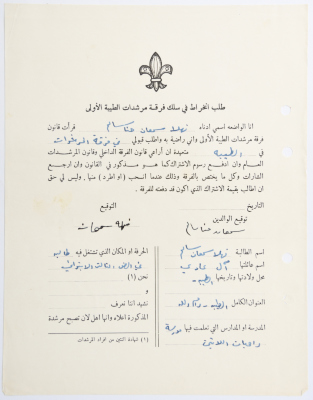 طلب انخراط في سلك فرقة مرشدات الطيبة الأولى
انا الواضعة اسمي ادناه نهلا سمعان حنا سالم قرأت قانون
فرقة مرشدات الطيبة الأولى واني راضية به واطلب قبولي في فرقة المرشدات
في الطيبة متعهدة ان أراعي قانون الفرقة الداخلي وقانون المرشدات
العام وان ادفع رسوم الاشتراك كما هو مذكور في القانون وان ارجع
الشارات وكل ما يختص بالفرقة وذلك عندما انسحب (او اطرد) منها، وليس لي حق
ان اطالب بقيمة الاشتراك الذي اكون قد دفعته للفرقة.
التاريخ
التوقيع
توقيع الوالدين
سمعان حنا سالم
اسم الطالبة نهلا سمعان سالم
اسم عائلتها
محل ولادتها وتاريخها الطيبة
العنوان الكامل الطيبة - رام الله
المدرسة او المدارس التي تعلمت فيها مدرسة
راهبات اللاتين
الحرفة او المكان الذي تشتغل فيه طالبة
نحن (١)
و
نشهد اننا نعرف
المذكورة اعلاه وانها اهل لان تصبح مرشدة
(١) شهادة اثنتين من افراد المرشدات